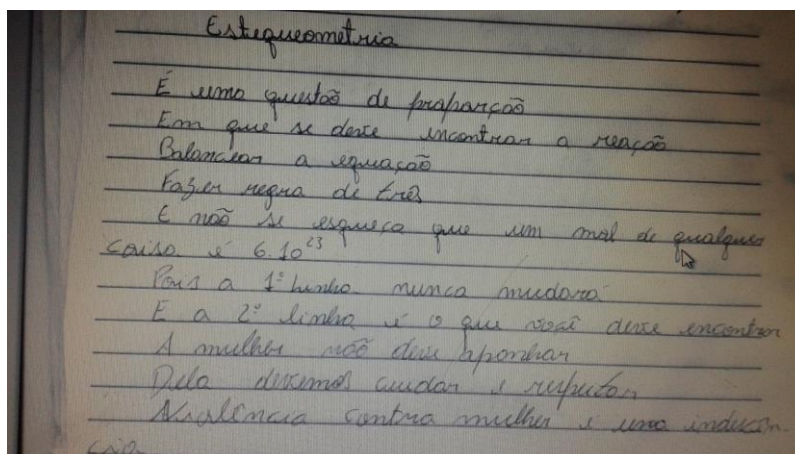 Estequeometria
É uma questão de proporção
Em que se deve encontrar a reação
Balancear a equação
Fazer regra de três
E não se esqueça que um mol de qualquer
coisa é 6.10²³
Pois a 1ª linha nunca mudará
E a 2ª linha é o que você deve encontrar
A mulher não deve apanhar
Dela devemos cuidar e respeitar
Violência contra mulher é uma indecên-
cia